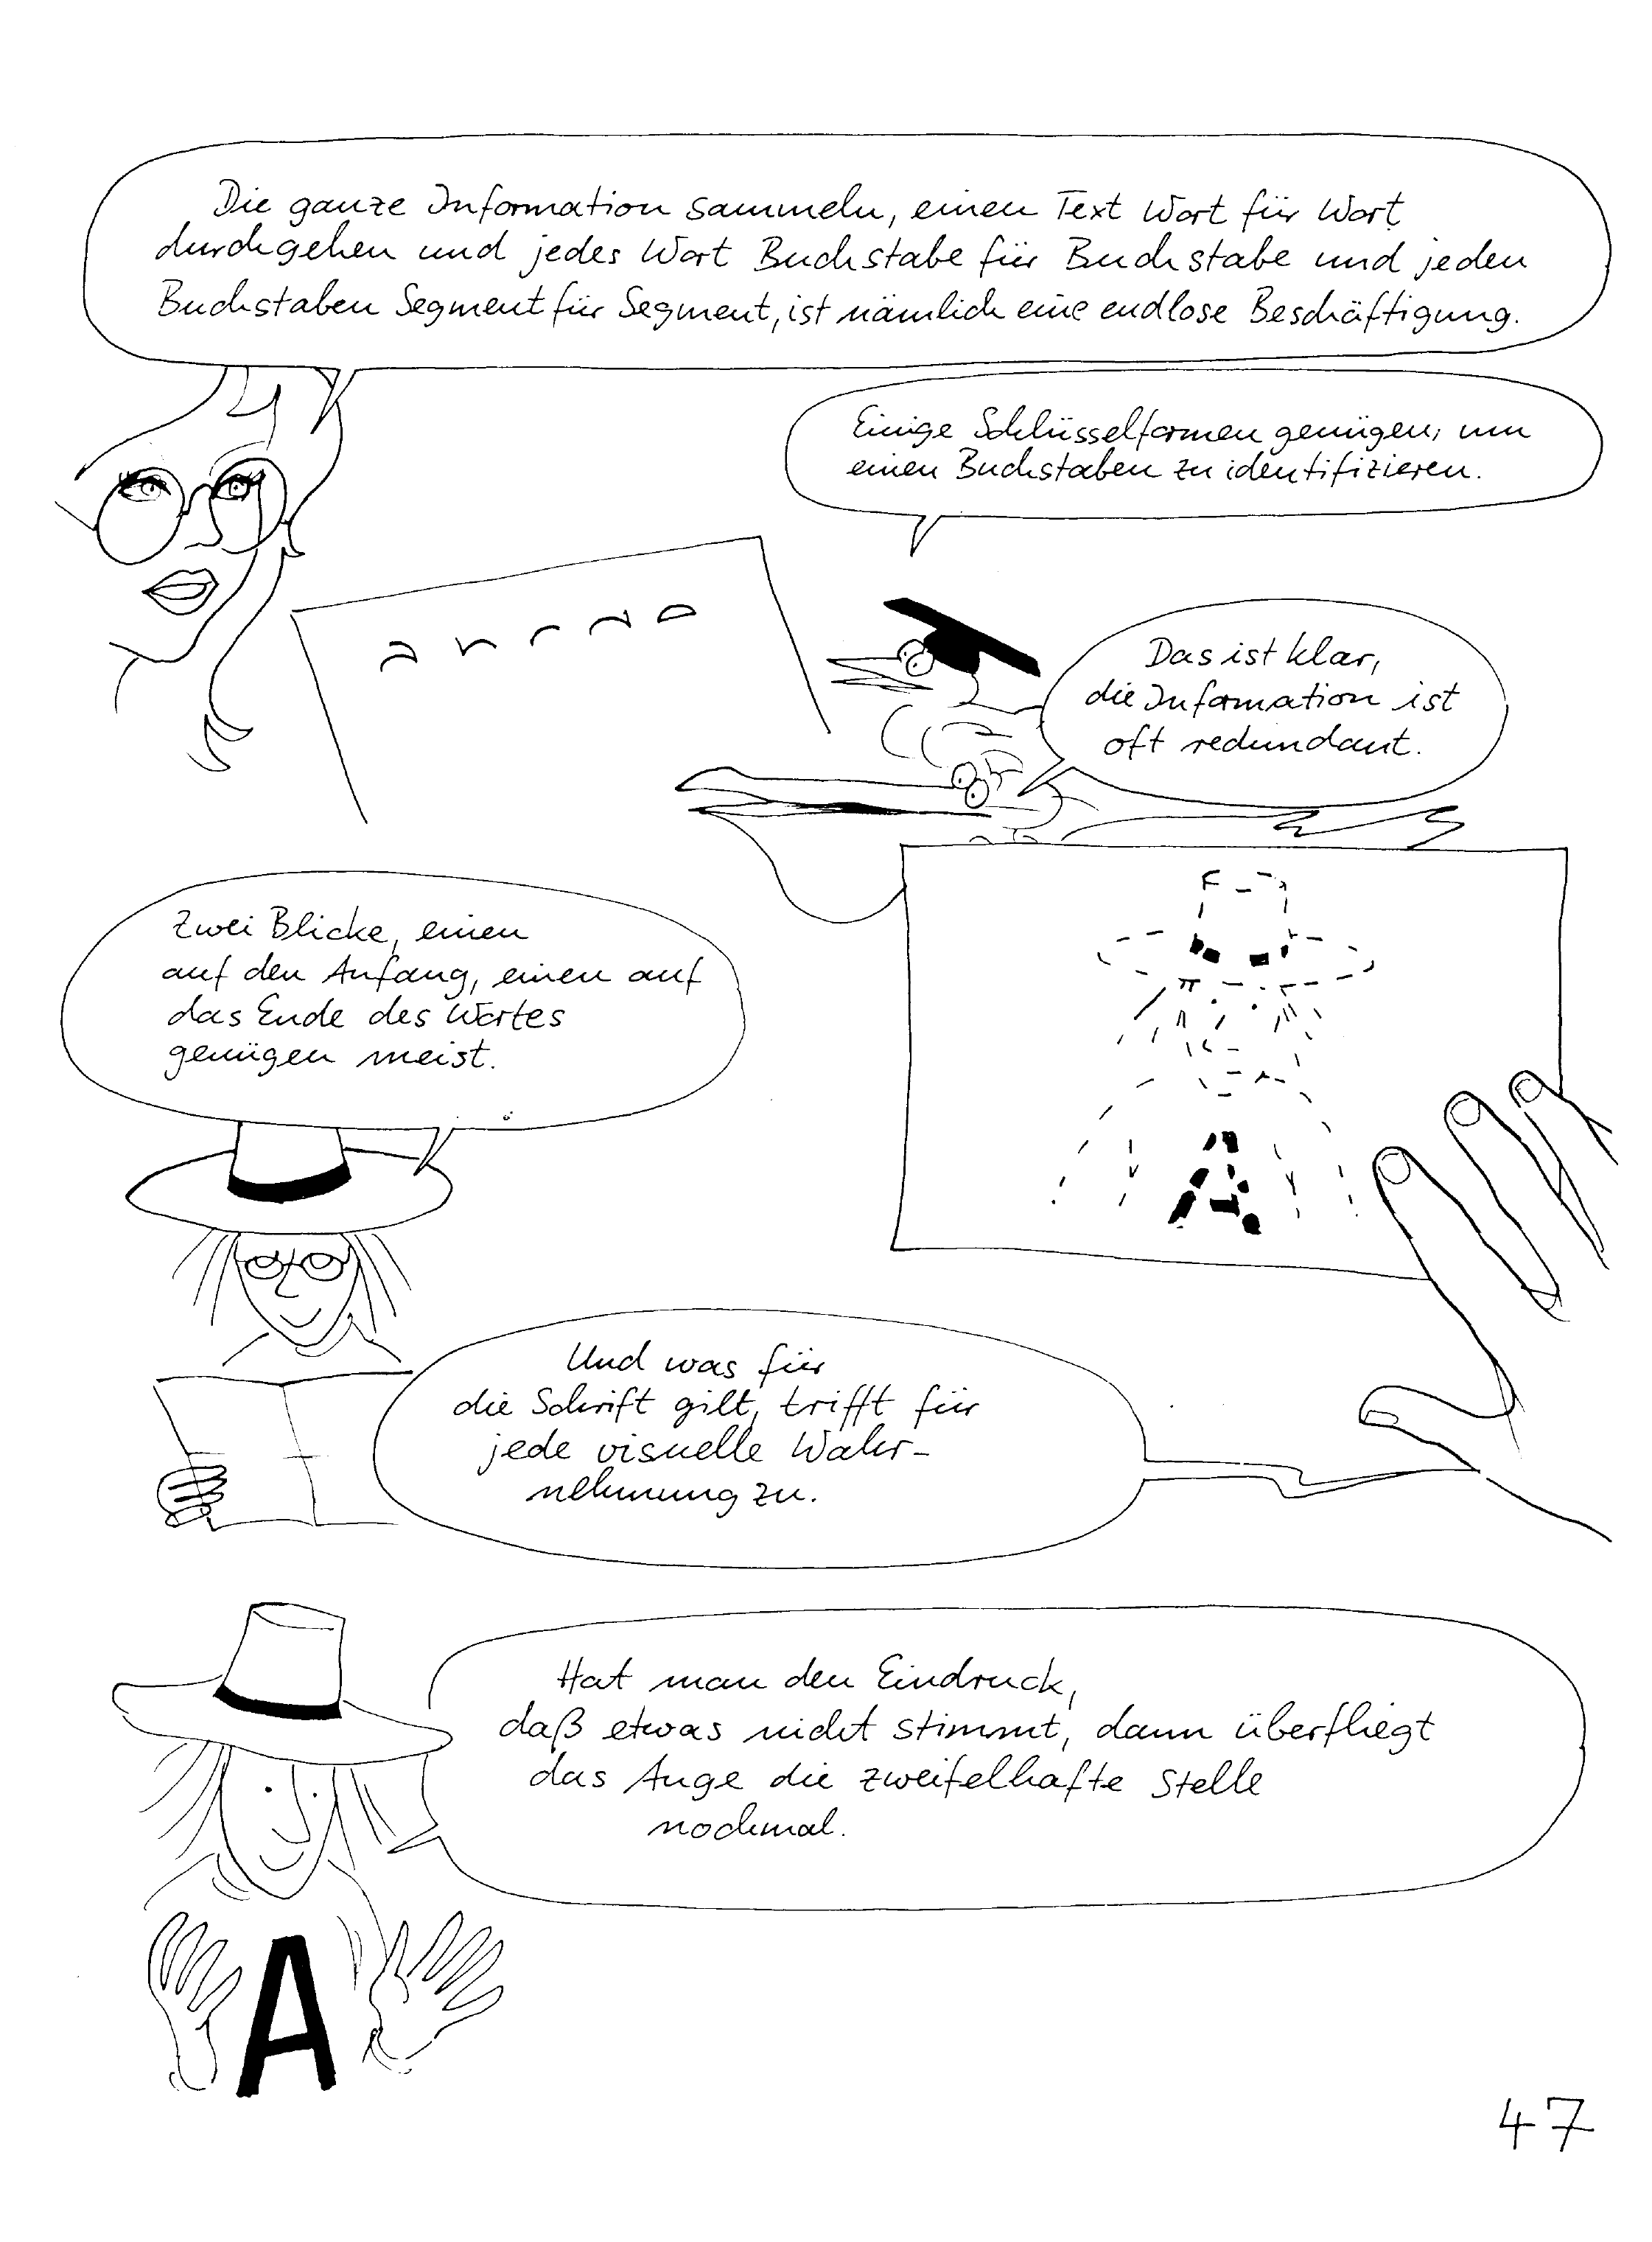 Die ganze Information sammeln, einen Text Wort für Wort
durchgehen und jedes Wort Buchstabe für Buchstabe und jeden
Buchstaben Segment für Segment, ist nämlich eine endlose Beschäftigung.
Einige Schlüsselformen genügen, um
einen Buchstaben zu identifizieren.
Das ist klar,
die Information ist
oft redundant.
Zwei Blicke, einen
auf den Anfang, einen auf
das Ende des Wortes
genügen meist.
Und was für
die Schrift gilt, trifft für
jede visuelle Wahr-
nehmung zu.
Hat man den Eindruck,
daß etwas nicht stimmt, dann überfliegt
das Auge die zweifelhafte Stelle
nochmal.
A
47